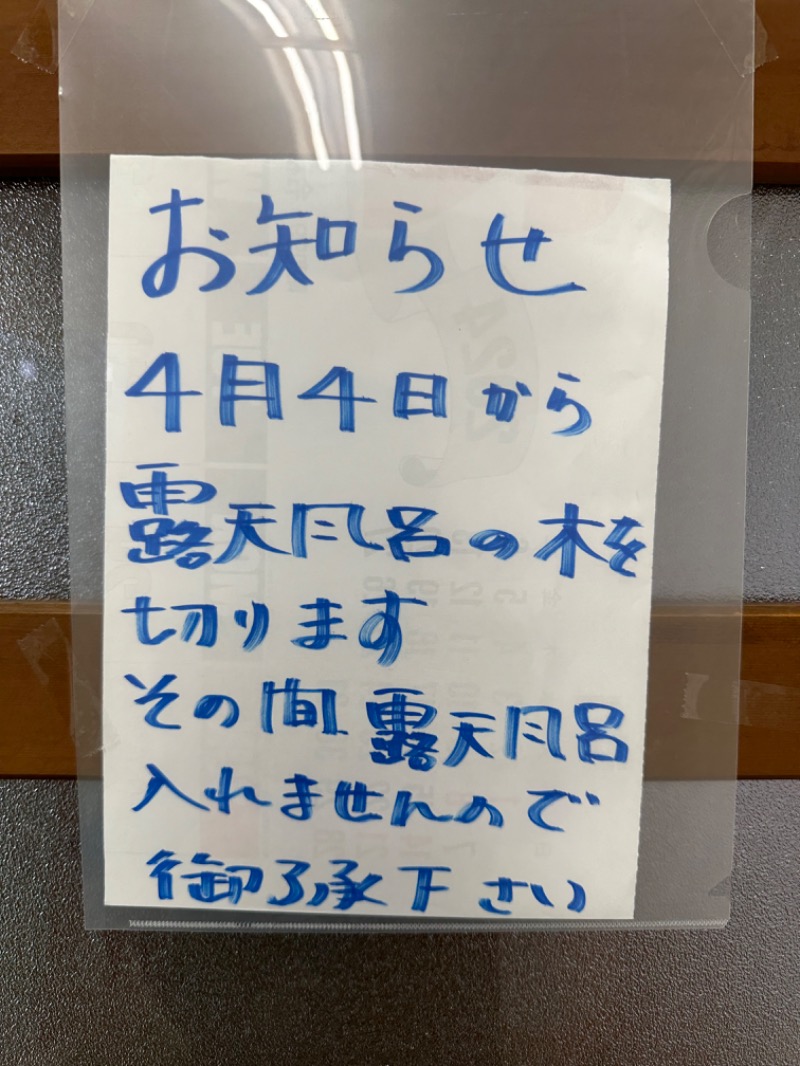 お知らせ
4月4日から
露天風呂の木を
切ります
その間露天風呂
入れませんので
御了承下さい